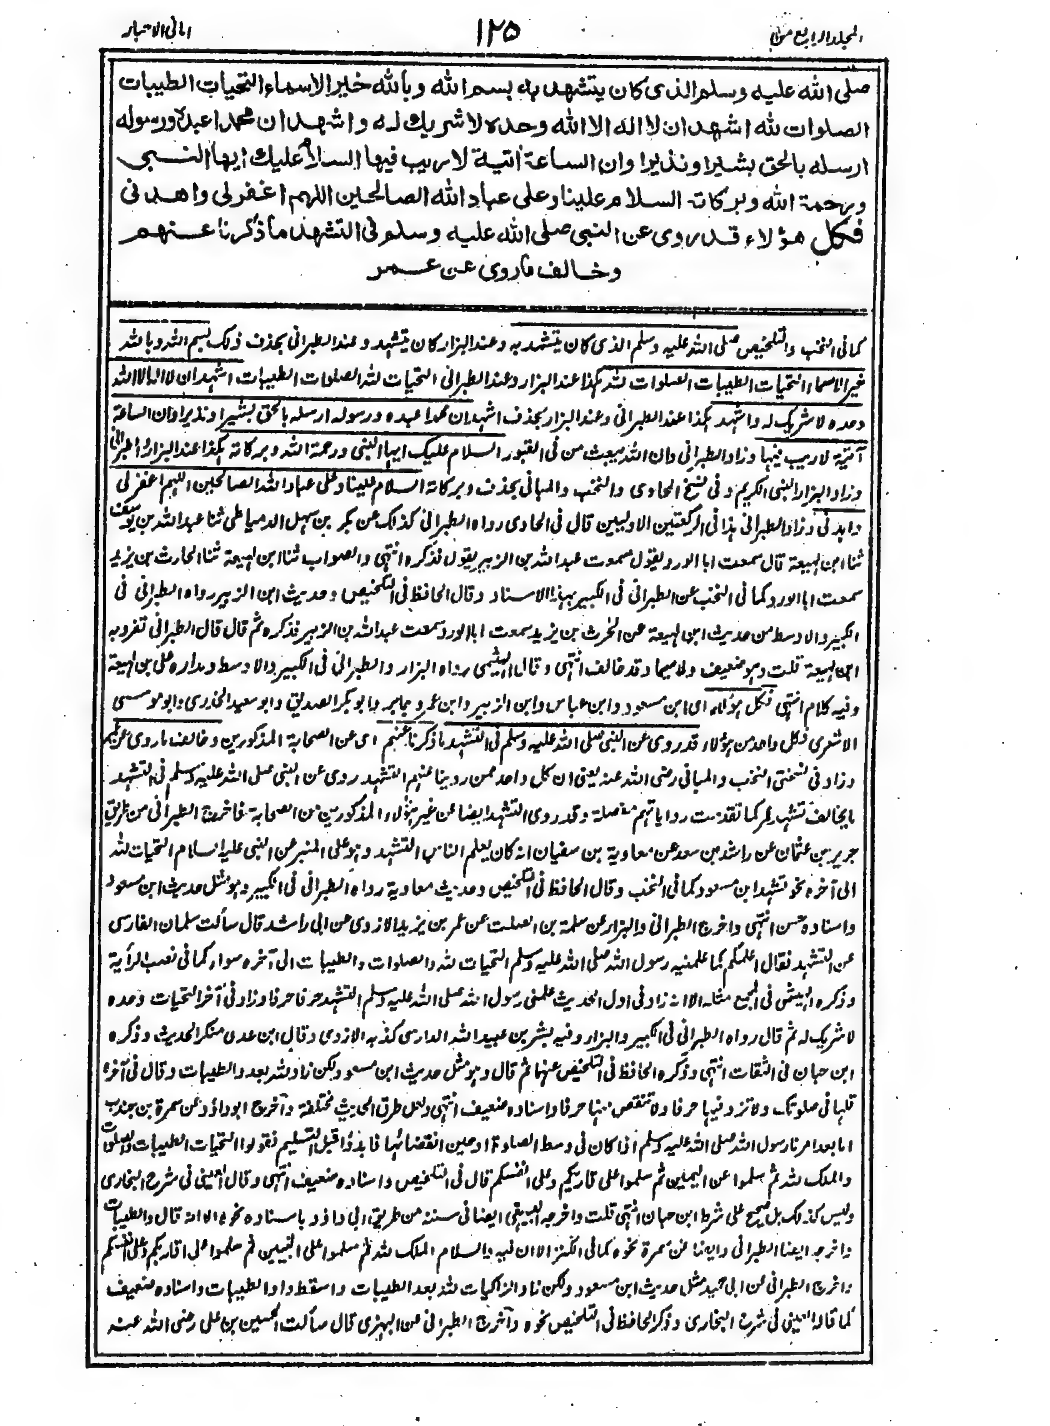 المجلد الرابع من ١٢٥ امانی الاحبار
صلى الله عليه وسلم الذى كان يتشهد به بسم الله وبالله خير الاسماء التحيات الطيبات
الصلوات لله اشهد ان لا اله الا الله وحده لا شريك له واشهد ان محمدا عبده ورسوله
ارسله بالحق بشيرا ونذيرا وان الساعة أتية لا ريب فيها السلام عليك ايها النبى
ورحمة الله وبركاته السلام علينا وعلى عباد الله الصالحين اللهم اغفر لى واهدنى
فكل هؤلاء قد روى عن النبى صلى الله عليه وسلم فى التشهد ما ذكرنا عنهم
وخالف ما روى عن عمر
كما فى النخب والتلخيص صلى الله عليه وسلم الذى كان يتشهد به وعند البزار كان يتشهد وعند الطبرانى بحذف ذلك بسم الله وبالله
خير الاسماء التحيات الطيبات الصلوات لله هكذا عند البزار وعند الطبرانى التحيات لله الصلوات الطيبات اشهد ان لا اله الا الله
وحده لا شريك له واشهد هكذا عند الطبرانى وعند البزار بحذف اشهد ان محمدا عبده ورسوله ارسله بالحق بشيرا ونذيرا وان الساعة
آتية لا ريب فيها وزاد الطبرانى وان الله يبعث من فى القبور السلام عليك ايها النبى ورحمة الله وبركاته هكذا عند البزار والطبرانى
وزاد البزار النبى الكريم وفى نسخ الحاوى والنخب والمبانى بحذف وبركاته السلام علينا وعلى عباد الله الصالحين اللهم اغفر لى
واهدنى وزاد الطبرانى هذا فى الركعتين الاوليين قال فى الحاوى رواه الطبرانى كذلك عن بكر بن سهل الدمياطى ثنا عبد الله بن يوسف
ثنا ابن لهيعة قال سمعت ابا الورد يقول سمعت عبد الله بن الزبير يقول فذكره انتهى والصواب ثنا ابن لهيعة ثنا الحارث بن يزيد
سمعت ابا الورد كما فى النخب عن الطبرانى فى الكبير بهذا الاسناد وقال الحافظ فى التلخيص وحديث ابن الزبير رواه الطبرانى فى
الكبير والاوسط من حديث ابن لهيعة عن الحرث بن يزيد سمعت ابا الورد سمعت عبد الله بن الزبير فذكره ثم قال قال الطبرانى تفرد به
ابن لهيعة قلت وهو ضعيف ولا سيما وقد خالف انتهى وقال الهيثمى رواه البزار والطبرانى فى الكبير والاوسط ومداره على بن لهيعة
وفيه كلام انتهى فكل هؤلاء اى ابن مسعود وابن عباس وابن الزبير وابن عمر وجابر وابو بكر الصديق وابو سعيد الخدرى وابو موسى
الاشعرى فكل واحد من هؤلاء قد روى عن النبى صلى الله عليه وسلم فى التشهد ما ذكرنا عنهم اى عن الصحابة المذكورين وخالف ما روى عن عمر
وزاد فى نسختى النخب والمبانى رضى الله عنه يعنى ان كل واحد ممن روينا عنهم التشهد روى عن النبى صلى الله عليه وسلم فى التشهد
ما يخالف تشهد عمر كما تقدمت رواياتهم مفصلة وقد روى التشهد ايضا عن غير هؤلاء المذكورين من الصحابة فاخرج الطبرانى من طريق
حريز بن عثمان عن راشد بن سعد عن معاوية بن سفيان انه كان يعلم الناس التشهد وهو على المنبر عن النبى عليه السلام التحيات لله
الى آخره نحو تشهد ابن مسعود كما فى النخب وقال الحافظ فى التلخيص وحديث معاوية رواه الطبرانى فى الكبير وهو مثل حديث ابن مسعود
واسناده حسن انتهى واخرج الطبرانى والبزار عن سلمة بن الصلت عن عمر بن يزيد الازدى عن ابى راشد قال سألت سلمان الفارسى
عن التشهد فقال اعلمكم كما علمنيه رسول الله صلى الله عليه وسلم التحيات لله والصلوات والطيبات الى آخره سواء كما فى نصب الرأية
وذكره الهيثمى فى المجمع مثله الا انه زاد فى اول الحديث علمنى رسول الله صلى الله عليه وسلم التشهد حرفا حرفا وزاد فى آخر التحيات وحده
لا شريك له ثم قال رواه الطبرانى فى الكبير والبزار وفيه بشر بن عبيد الله الدارسى كذبه الازدى وقال ابن عدى منكر الحديث وذكره
ابن حبان فى الثقات انتهى وذكره الحافظ فى التلخيص عنهما ثم قال وهو مثل حديث ابن مسعود ولكن زاد لله بعد والطيبات وقال فى آخره
قلها فى صلوتك ولا تزد فيها حرفا ولا تنقص منها حرفا واسناده ضعيف انتهى ولعل طرق الحديث مختلفة وآخرج ابو داؤد عن سمرة بن جندب
اما بعد امرنا رسول الله صلى الله عليه وسلم اذا كان فى وسط الصلوة او حين انقضائها فابدؤا قبل التسليم فقولوا التحيات الطيبات والصلوات
والملك لله ثم سلموا عن اليمين ثم سلموا على قاريكم وعلى انفسكم قال فى التلخيص واسناده ضعيف انتهى وقال العينى فى شرح البخارى
وليس كذلك بل صحيح على شرط ابن حبان انتهى قلت واخرجه البيهقى ايضا فى سننه من طريق ابى داؤد باسناده نحوه الا انه قال والطيبات
واخرجه ايضا الطبرانى وايضا عن سمرة نحوه كما فى الكنز الا ان فيه والسلام الملك لله ثم سلموا على النبيين ثم سلموا على اقاربكم وعلى انفسكم
واخرج الطبرانى عن ابى حميد مثل حديث ابن مسعود ولكن زاد الزاكيات لله بعد الطيبات واسقط واو الطيبات واسناده ضعيف
كما قاله العينى فى شرح البخارى وذكر الحافظ فى التلخيص نحوه وآخرج الطبرانى عن البهزى قال سألت الحسين بن على رضى الله عنه